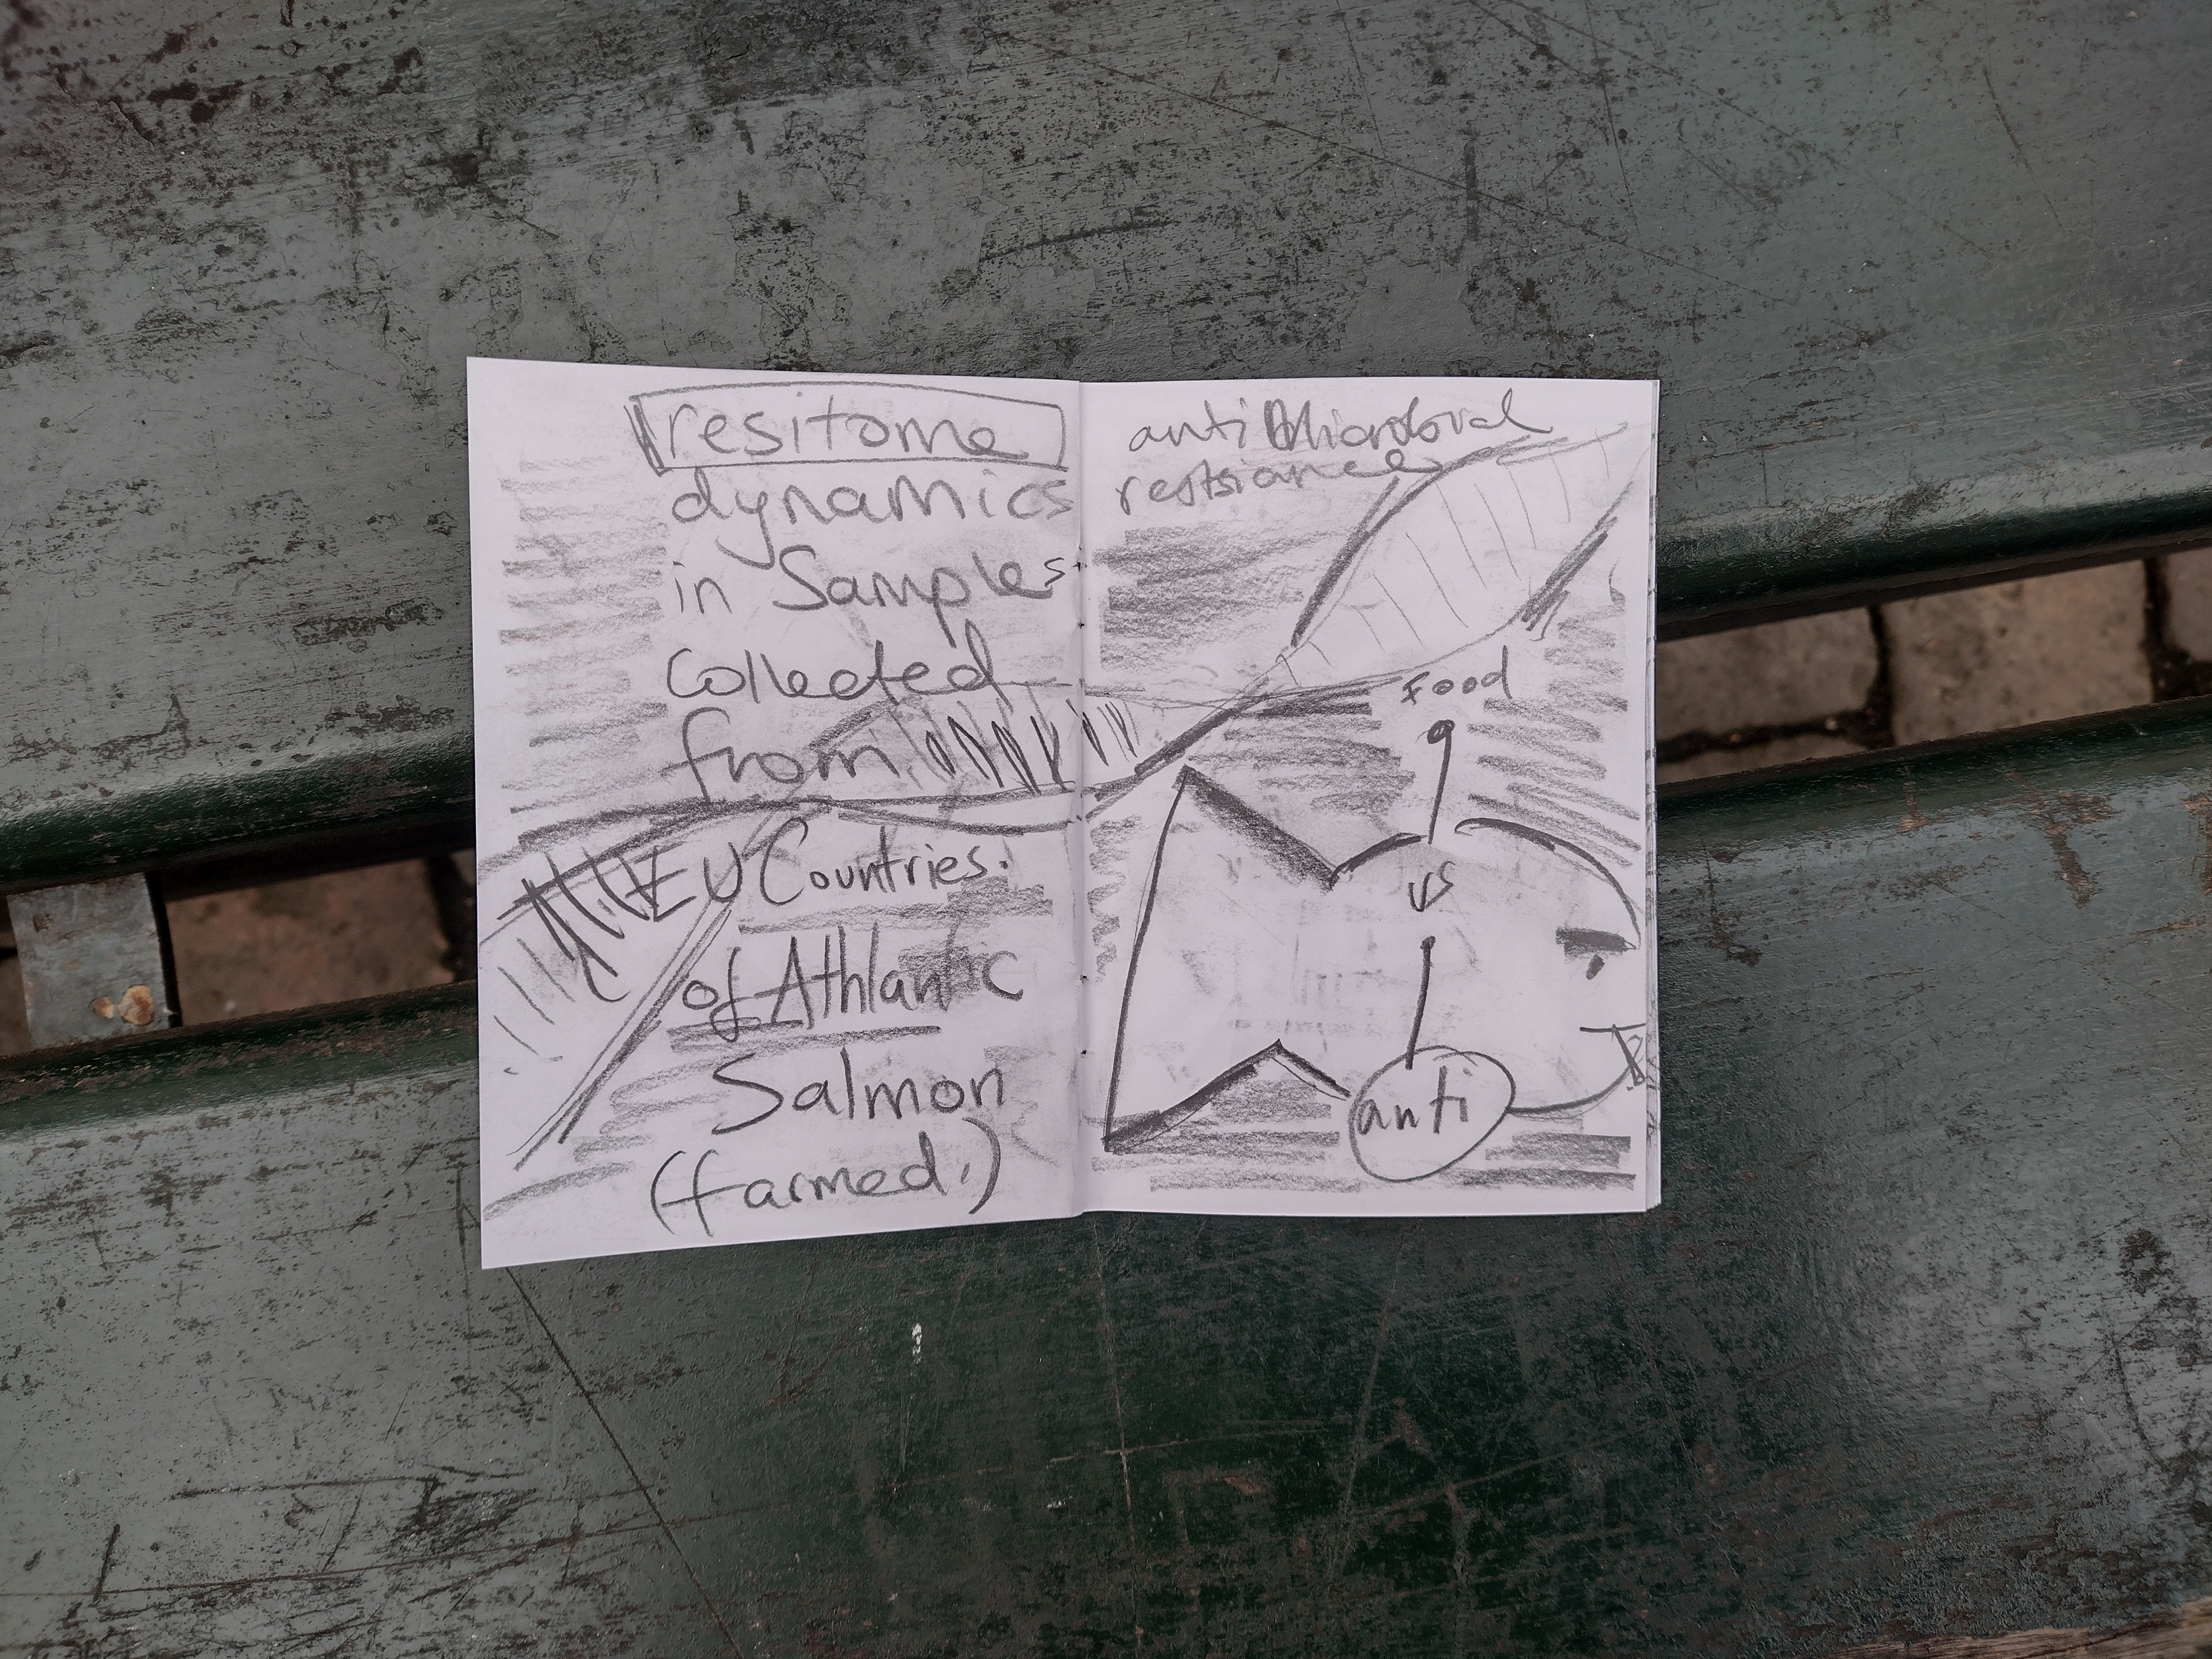 resitome
dynamics
in Samples
Collected
from
EU Countries.
of Athlantic
Salmon
(farmed.)
anti Microbial
restsiance
Food
vs
anti